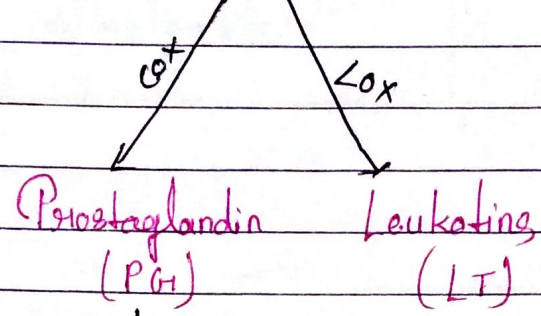 COX LOX
Prostaglandin Leukoting
(PG) (LT)